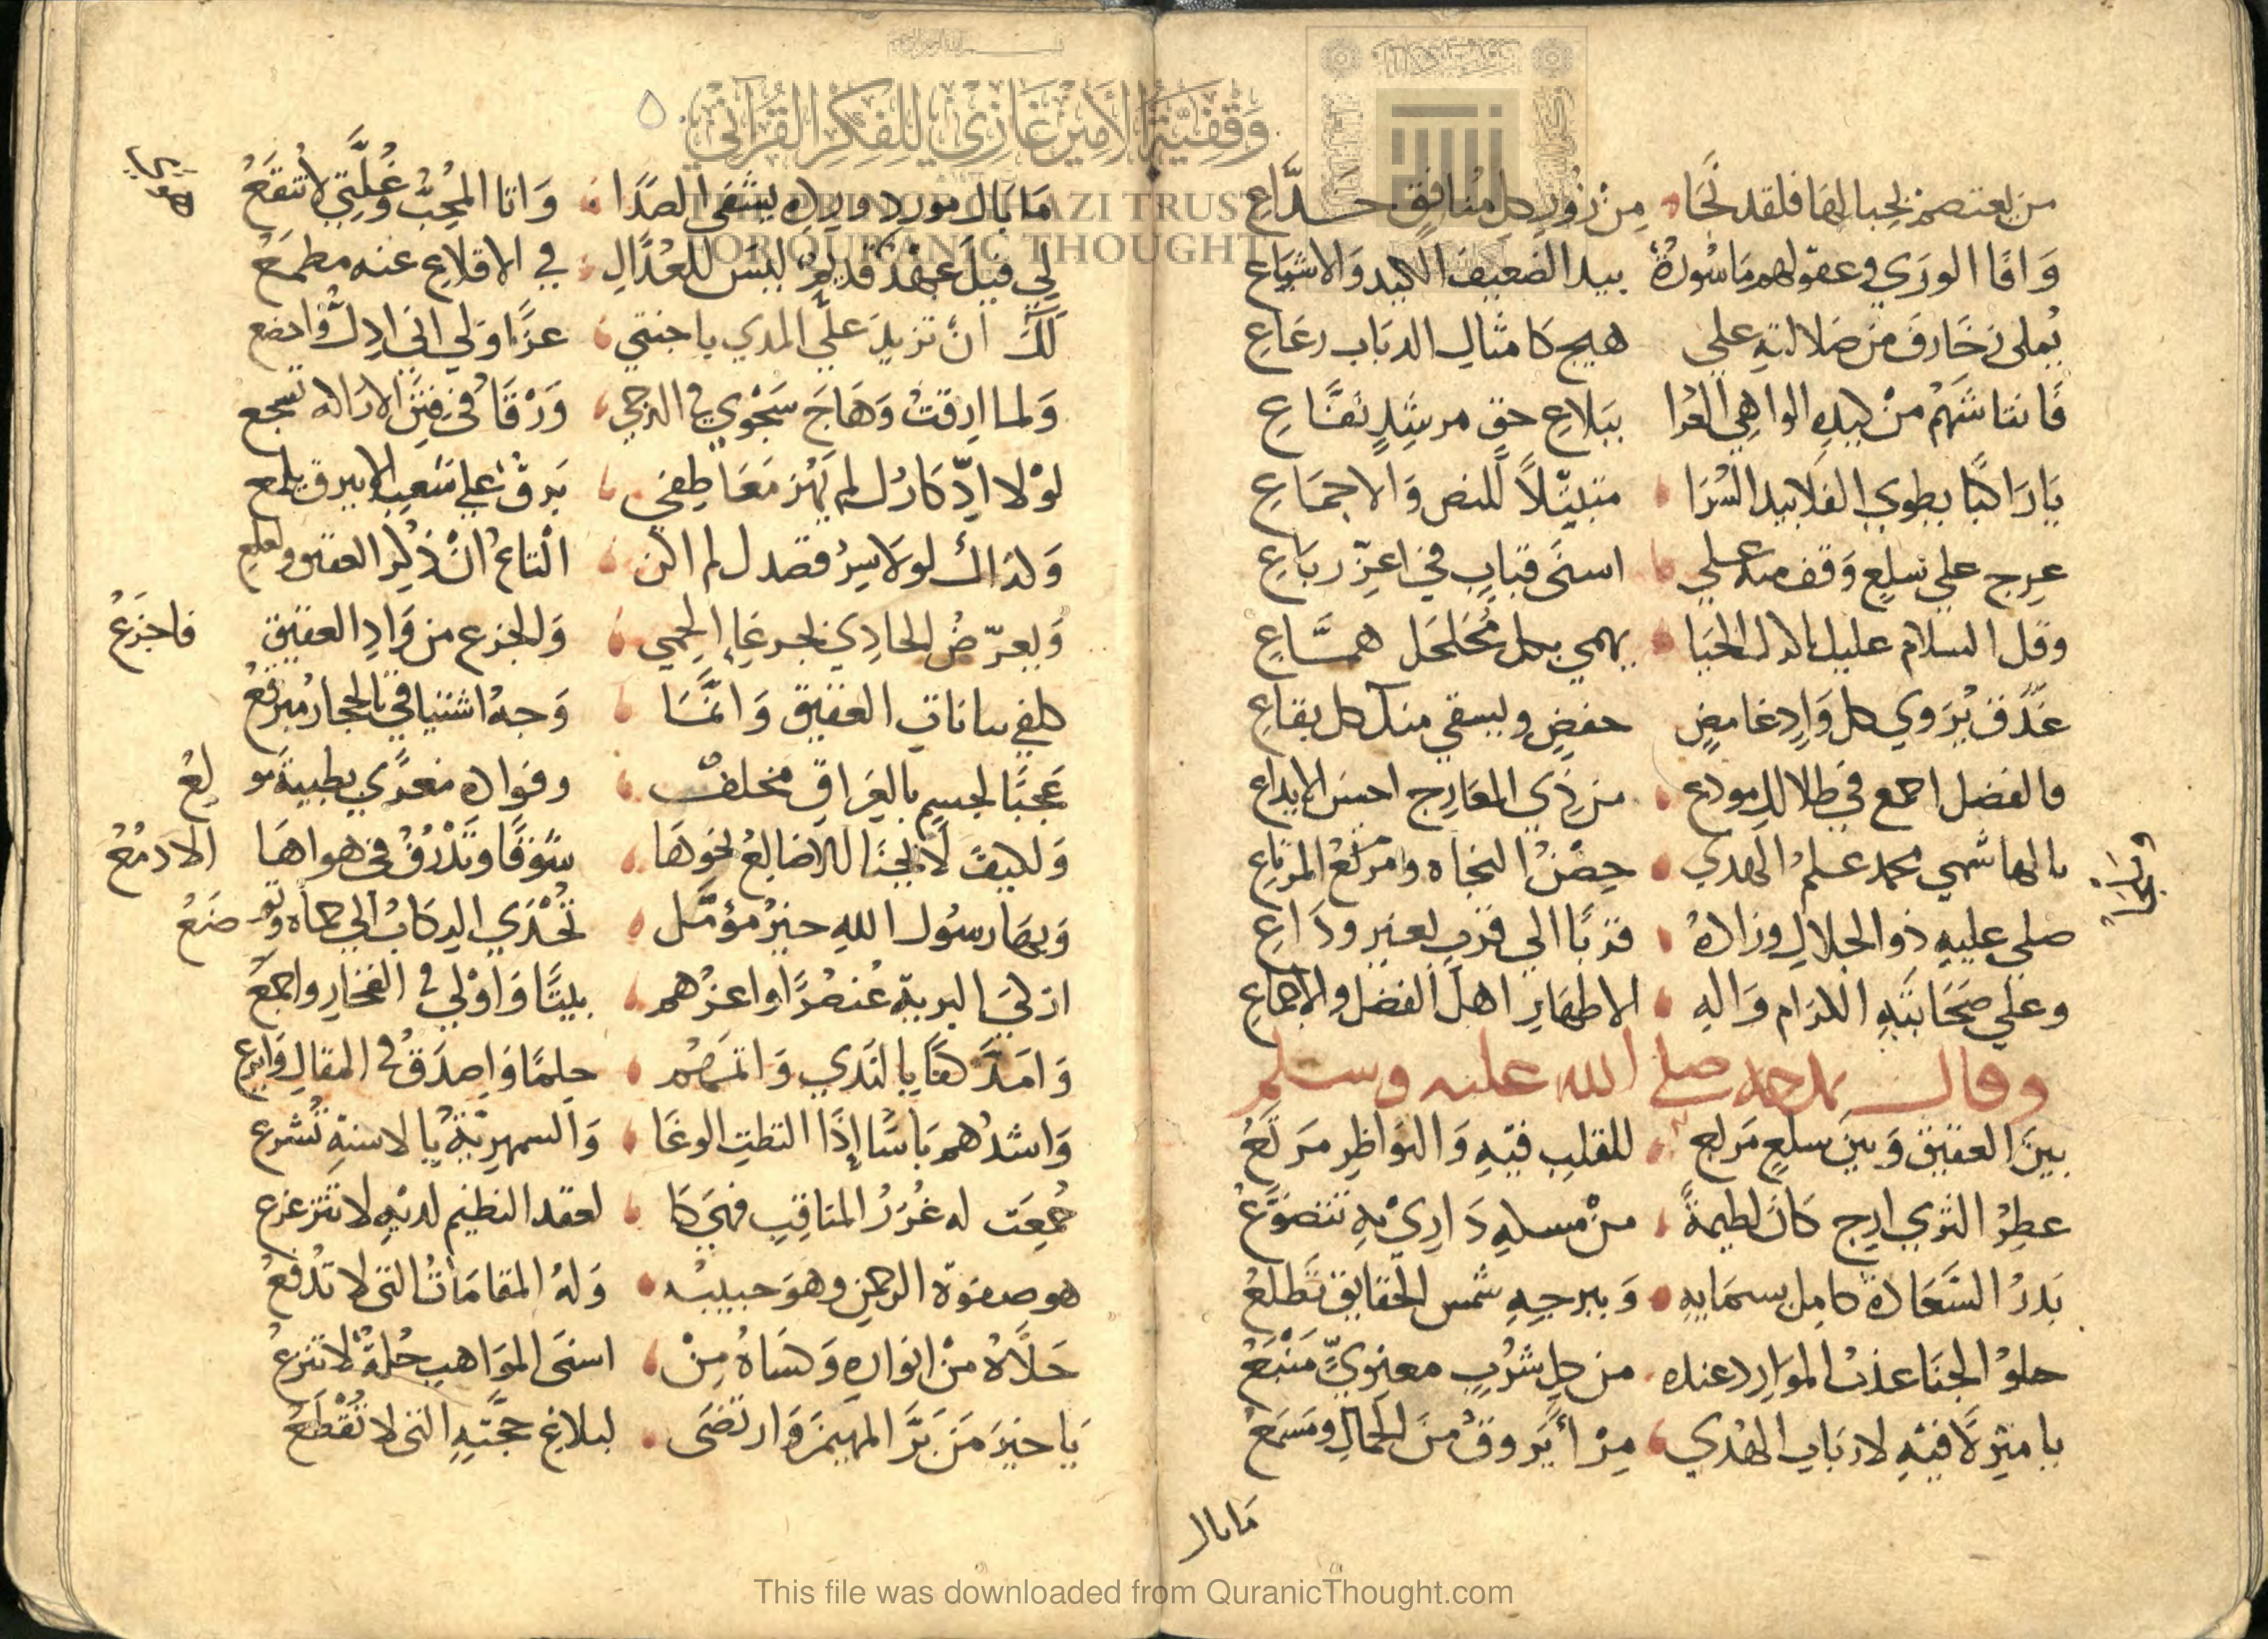 من يعتصم بحبالها فلقد نجا من زور كل منافق خداع
وافا الورى وعقولهم ماسورة بيد الضعيف الكيد والاشياع
يملى زخارف من ضلالته على همج كامثال الدباب رعاع
فانتاشهم من كيده الواهي العرا ببلاغ حق مرشد نفاع
يا راكبا يطوي الفلا بيد السرا متبتلا للنص والاجماع
عرج على سلع وقف منه على اسنى قباب في اعز رباع
وقل السلام عليك ما دل الحيا يهمي بكل مجلجل هماع
غدق يروي كل واد غامض خفض ويسقي منك كل يفاع
فالفضل اجمع في ظلالك مودع من ذي المعارج احسن الايداع
بالهاشمي محمد علم الهدي حصن النجاه ومربع المرتاع
صلى عليه ذو الجلال وزاده قربا الى قرب بغير وداع
وعلى صحابته الكرام واله الاطهار اهل الفضل والاجماع
وقال يمدحه صلى الله عليه وسلم
بين العقيق وبين سلع مربع للقلب فيه والنواظر مرتع
عطر الثري ارج كان لطيمة من مسك داري به تتضوع
بدر السعادة كامل بسمايه وببرجه شمس الحقايق تطلع
حلو الجنا عذب الموارد عنده من كل شرب معنوي منبع
يا منزلا فيه لارباب الهدي مرأ يروق من الجمال ومسمع
ما بال
وقفية الأمير غازي للفكر القرآني
THE PRINCE GHAZI TRUST
FOR QURANIC THOUGHT
ما بال مورد ورده يشفي الصدا وانا المحب وغلتي لا تنقع
لي فيك عهد قديم ليس للعذال في الاقلاع عنه مطمع
لك ان تزيد علي المدي يا جنتي عزا ولي اني اذل واخضع
ولما ارقت وهاج شجوي في الدجي ورقا في فنن الاراكه تسجع
لولا ادكارك لم يهز معاطفي برق على شعب الابيرق يلمع
ولذاك لولا سر قصدك لم اكن التاع ان ذكر العقيق ولعلع
ويعرض الحادي بجرعاء الحمي والجزع من واد العقيق فاجزع
كلفي ببانات العقيق وانما وجه اشتياقي بالحجاز مبرقع
عجبا لجسم بالعراق مخلف وفواده مغدي بطيبة مولع
وكيف لا تحنا الاضالع نحوها شوقا وتذرف في هواها الادمع
وبها رسول الله خير مؤمل تحذي الركاب الى حماه وتوضع
ازكي البرية عنصرا واعزهم بيتا واولي في الفخار واجمع
وامد كفا بالندي واتمهم حلما واصدق في المقال
واشدهم باسا إذا التظت الوغا والسمهرية بالاسنة تشرع
جمعت له غرر المناقب فهي كا لعقد النظيم لديه لا تتزعزع
هو صفوة الرحمن وهو حبيبه وله المقامات التي لا تدفع
حلاه من انواره وكساه من اسنى المواهب حلة لا تنزع
يا خير من بر المهيمن وارتضى لبلاغ حجته التي لا تقطع
This file was downloaded from QuranicThought.com